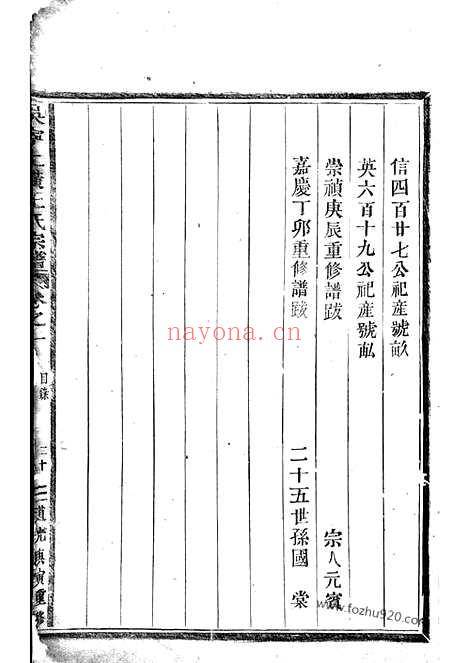 信四百廿七公祀産號畝
英六百十九公祀産號畝
崇禎庚辰重修譜跋 宗人元賓
嘉慶丁卯重修譜跋 二十五世孫國棠
王氏宗譜 卷之一 目錄 三十 道光庚寅重修
nayona.cn
www.fozhu920.com